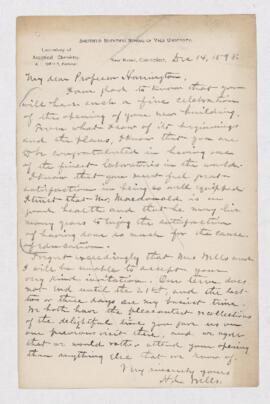 SHEFFIELD SCIENTIFIC SCHOOL OF YALE UNIVERSITY.
Laboratory of
Analytical Chemistry,
New Haven, Connecticut, Dec 14, 1898.
My dear Professor Harrington,
I am glad to know that you
will have such a fine celebration
of the opening of your new building.
From what I saw of its beginnings
and the plans, I know that you are
to be congratulated in having one
of the finest laboratories in the world.
I know that you must feel great
satisfaction in being so well equipped.
I trust that Mr. Macdonald is in
good health and that he may live
many years to enjoy the satisfaction
of having done so much for the cause
of education.
I regret exceedingly that Mrs Wells and
I will be unable to accept your
very kind invitation. Our term does
not end until the 21st, and the last
two or three days are my busiest time.
We both have the pleasantest recollections
of the delightful time you gave us on
our previous visit there, and we agree
that we would rather attend your opening
than anything else that we know of.
Very sincerely yours
H. L. Wells.